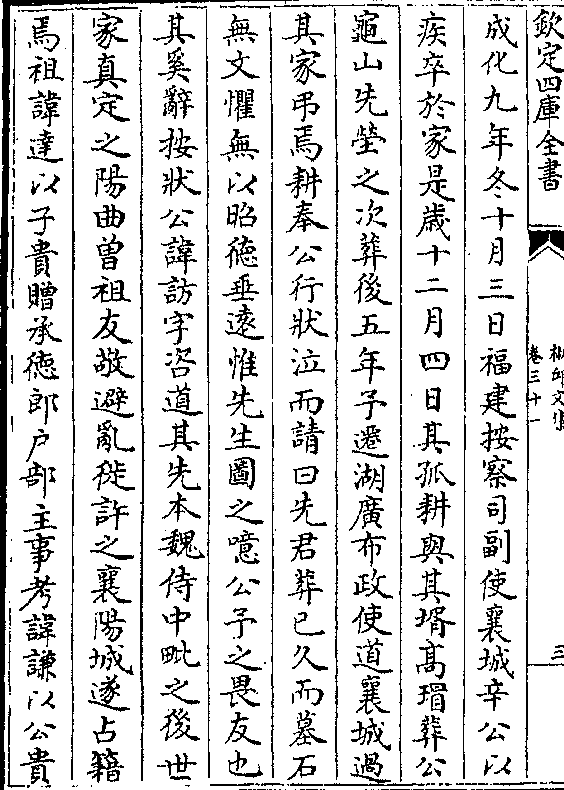 欽定四庫全書
卷三十一
三
成化九年冬十月三日福建按察司副使襄城辛公以
疾卒於家是歲十二月四日其孤耕與其壻高瑁葬公
龜山先塋之次葬後五年予遷湖廣布政使道襄城過
其家弔焉耕奉公行狀泣而請曰先君葬已久而墓石
無文懼無以昭徳垂逺惟先生圖之噫公予之畏友也
其奚辭按狀公諱訪字咨道其先本魏侍中毗之後世
家真定之陽曲曽祖友敬避亂徙許之襄陽城遂占籍
焉祖諱達以子貴贈承徳郎户部主事考諱謙以公貴